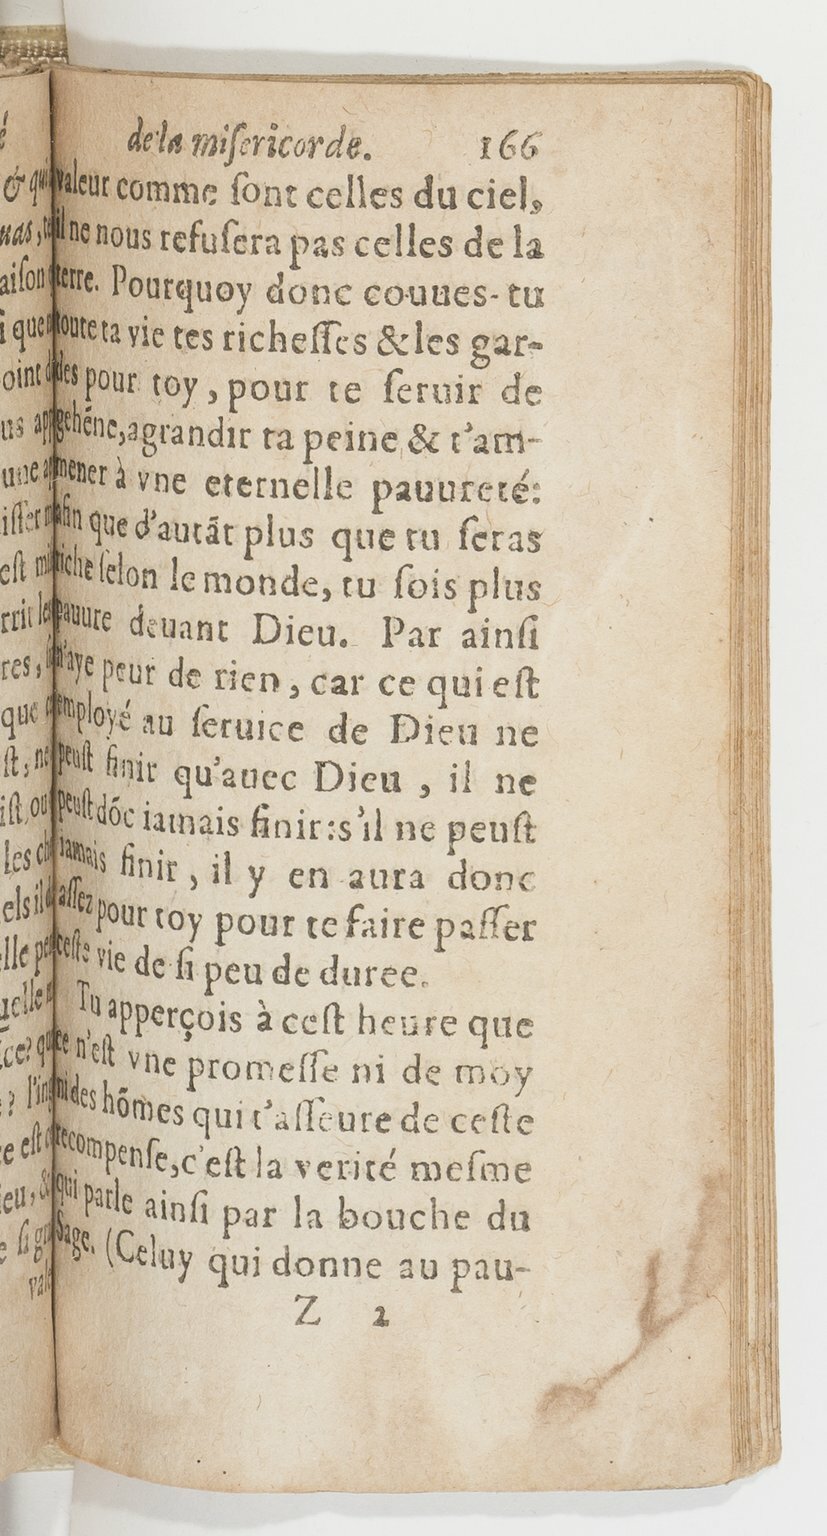 de la miſericorde. 166
valeur comme ſont celles du ciel,
il ne nous refuſera pas celles de la
terre. Pourquoy donc couues-tu
toute ta vie tes richeſſes & les gar-
des pour toy, pour te ſeruir de
gehēne, agrandir ta peine & t'am-
mener à vne eternelle pauureté:
afin que d'autāt plus que tu ſeras
riche ſelon le monde, tu ſois plus
pauure deuant Dieu. Par ainſi
n'aye peur de rien, car ce qui eſt
employé au ſeruice de Dieu ne
peuſt finir qu'auec Dieu, il ne
peuſt dōc iamais finir: s'il ne peuſt
iamais finir, il y en aura donc
aſſez pour toy pour te faire paſſer
ceſte vie de ſi peu de duree.
Tu apperçois à ceſt heure que
ce n'eſt vne promeſſe ni de moy
ni des hōmes qui t'aſſeure de ceſte
recompenſe, c'eſt la verité meſme
qui parle ainſi par la bouche du
Sage. (Celuy qui donne au pau-
Z 2